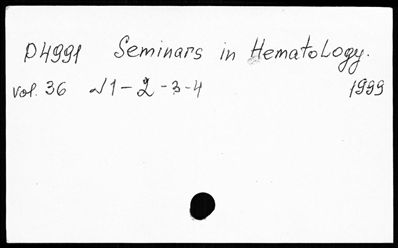 D4991 Seminars in Hematology.
vol. 36 √1-2-3-4 1999